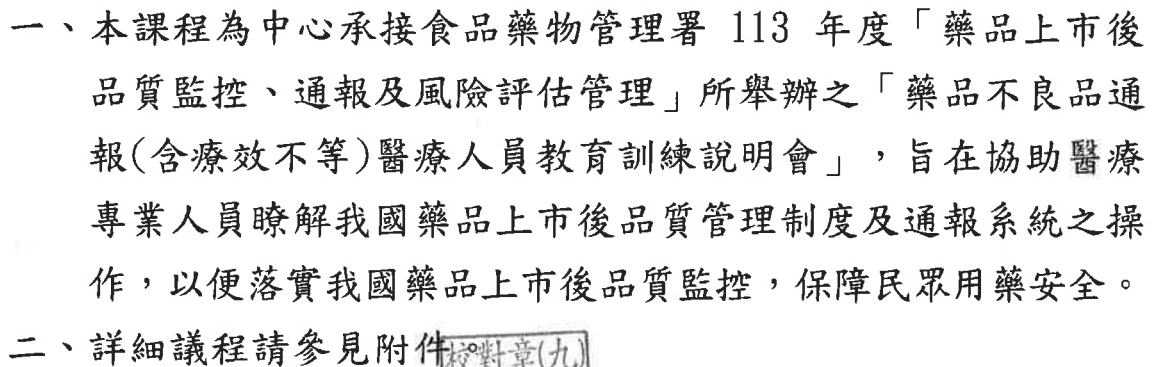 一、本課程為中心承接食品藥物管理署 113 年度「藥品上市後
品質監控、通報及風險評估管理」所舉辦之「藥品不良品通
報(含療效不等)醫療人員教育訓練說明會」，旨在協助醫療
專業人員瞭解我國藥品上市後品質管理制度及通報系統之操
作，以便落實我國藥品上市後品質監控，保障民眾用藥安全。
二、詳細議程請參見附件。
校對章(九)